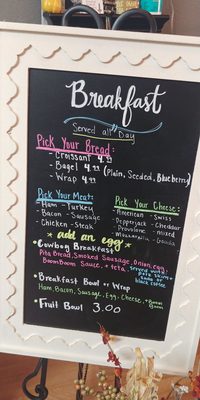 Breakfast
Served all Day
Pick Your Bread:
- Croissant 4.99
- Bagel 4.99 (Plain, Seeded, Blueberry)
- Wrap 4.99
Pick Your Meat:
- Ham - Turkey
- Bacon - Sausage
- Chicken - Steak
Pick Your Cheese:
- American - Swiss
- Pepperjack - Cheddar
- Provolone - mixed
- Mozzarella - Gouda
* add an egg *
* Cowboy Breakfast
Pita Bread, Smoked Sausage, Onion, egg,
BoomBoom Sauce, + feta,
served with
black coffee
* Breakfast Bowl or Wrap
Ham, Bacon, Sausage, Egg, Cheese, + Boom Boom
* Fruit Bowl 3.00